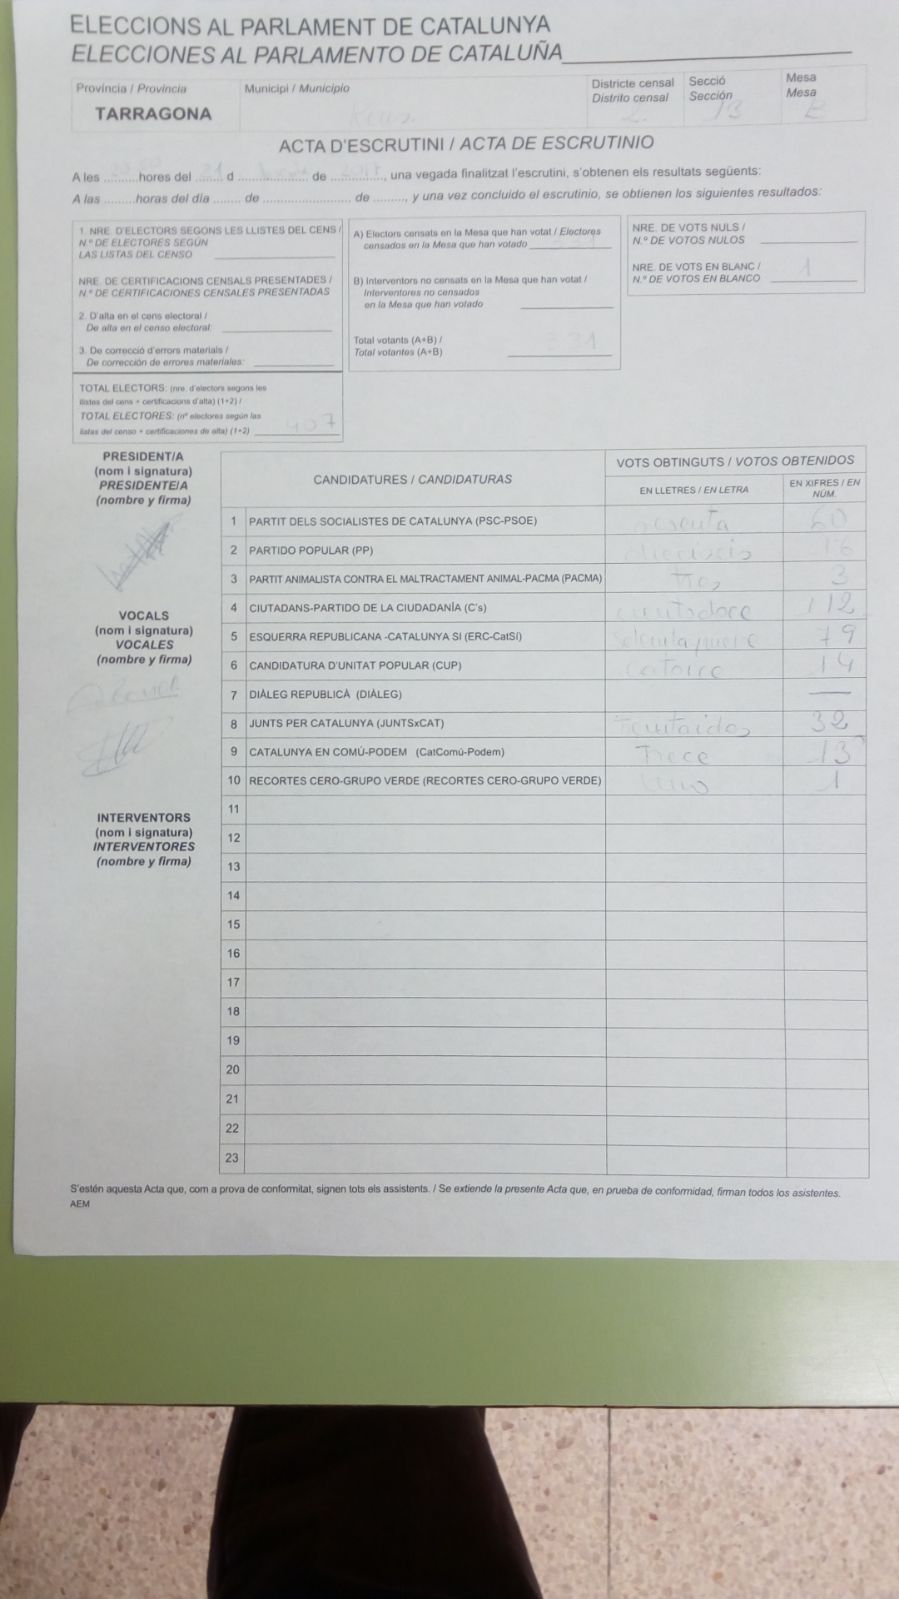 ELECCIONS AL PARLAMENT DE CATALUNYA
ELECCIONES AL PARLAMENTO DE CATALUÑA
Província / Provincia
TARRAGONA
Municipi / Municipio
Reus
Districte censal
Distrito censal
2
Secció
Sección
13
Mesa
Mesa
ACTA D'ESCRUTINI / ACTA DE ESCRUTINIO
A les .......... hores del 21 d ............ de 2017, una vegada finalitzat l'escrutini, s'obtenen els resultats següents:
A las ......... horas del día ........ de ......................... de ........., y una vez concluido el escrutinio, se obtienen los siguientes resultados:
1. NRE. D'ELECTORS SEGONS LES LLISTES DEL CENS /
N.º DE ELECTORES SEGÚN
LAS LISTAS DEL CENSO
NRE. DE CERTIFICACIONS CENSALS PRESENTADES /
N.º DE CERTIFICACIONES CENSALES PRESENTADAS
2. D'alta en el cens electoral /
De alta en el censo electoral:
3. De correcció d'errors materials /
De corrección de errores materiales:
TOTAL ELECTORS: (nre. d'electors segons les
llistes del cens + certificacions d'alta) (1+2) /
TOTAL ELECTORES: (nº electores según las
listas del censo + certificaciones de alta) (1+2) 407
A) Electors censats en la Mesa que han votat / Electores
censados en la Mesa que han votado
B) Interventors no censats en la Mesa que han votat /
Interventores no censados
en la Mesa que han votado
Total votants (A+B) /
Total votantes (A+B) 331
NRE. DE VOTS NULS /
N.º DE VOTOS NULOS
NRE. DE VOTS EN BLANC /
N.º DE VOTOS EN BLANCO 1
PRESIDENT/A
(nom i signatura)
PRESIDENTE/A
(nombre y firma)
VOCALS
(nom i signatura)
VOCALES
(nombre y firma)
INTERVENTORS
(nom i signatura)
INTERVENTORES
(nombre y firma)
CANDIDATURES / CANDIDATURAS
VOTS OBTINGUTS / VOTOS OBTENIDOS
EN LLETRES / EN LETRA
EN XIFRES / EN NÚM.
1 PARTIT DELS SOCIALISTES DE CATALUNYA (PSC-PSOE) 60
2 PARTIDO POPULAR (PP) dieciseis 16
3 PARTIT ANIMALISTA CONTRA EL MALTRACTAMENT ANIMAL-PACMA (PACMA) tres 3
4 CIUTADANS-PARTIDO DE LA CIUDADANÍA (C's) 112
5 ESQUERRA REPUBLICANA -CATALUNYA SI (ERC-CatSí) 79
6 CANDIDATURA D'UNITAT POPULAR (CUP) catorce 14
7 DIÀLEG REPUBLICÀ (DIÀLEG) —
8 JUNTS PER CATALUNYA (JUNTSxCAT) 32
9 CATALUNYA EN COMÚ-PODEM (CatComú-Podem) Trece 13
10 RECORTES CERO-GRUPO VERDE (RECORTES CERO-GRUPO VERDE) uno 1
11
12
13
14
15
16
17
18
19
20
21
22
23
S'estén aquesta Acta que, com a prova de conformitat, signen tots els assistents. / Se extiende la presente Acta que, en prueba de conformidad, firman todos los asistentes.
AEM